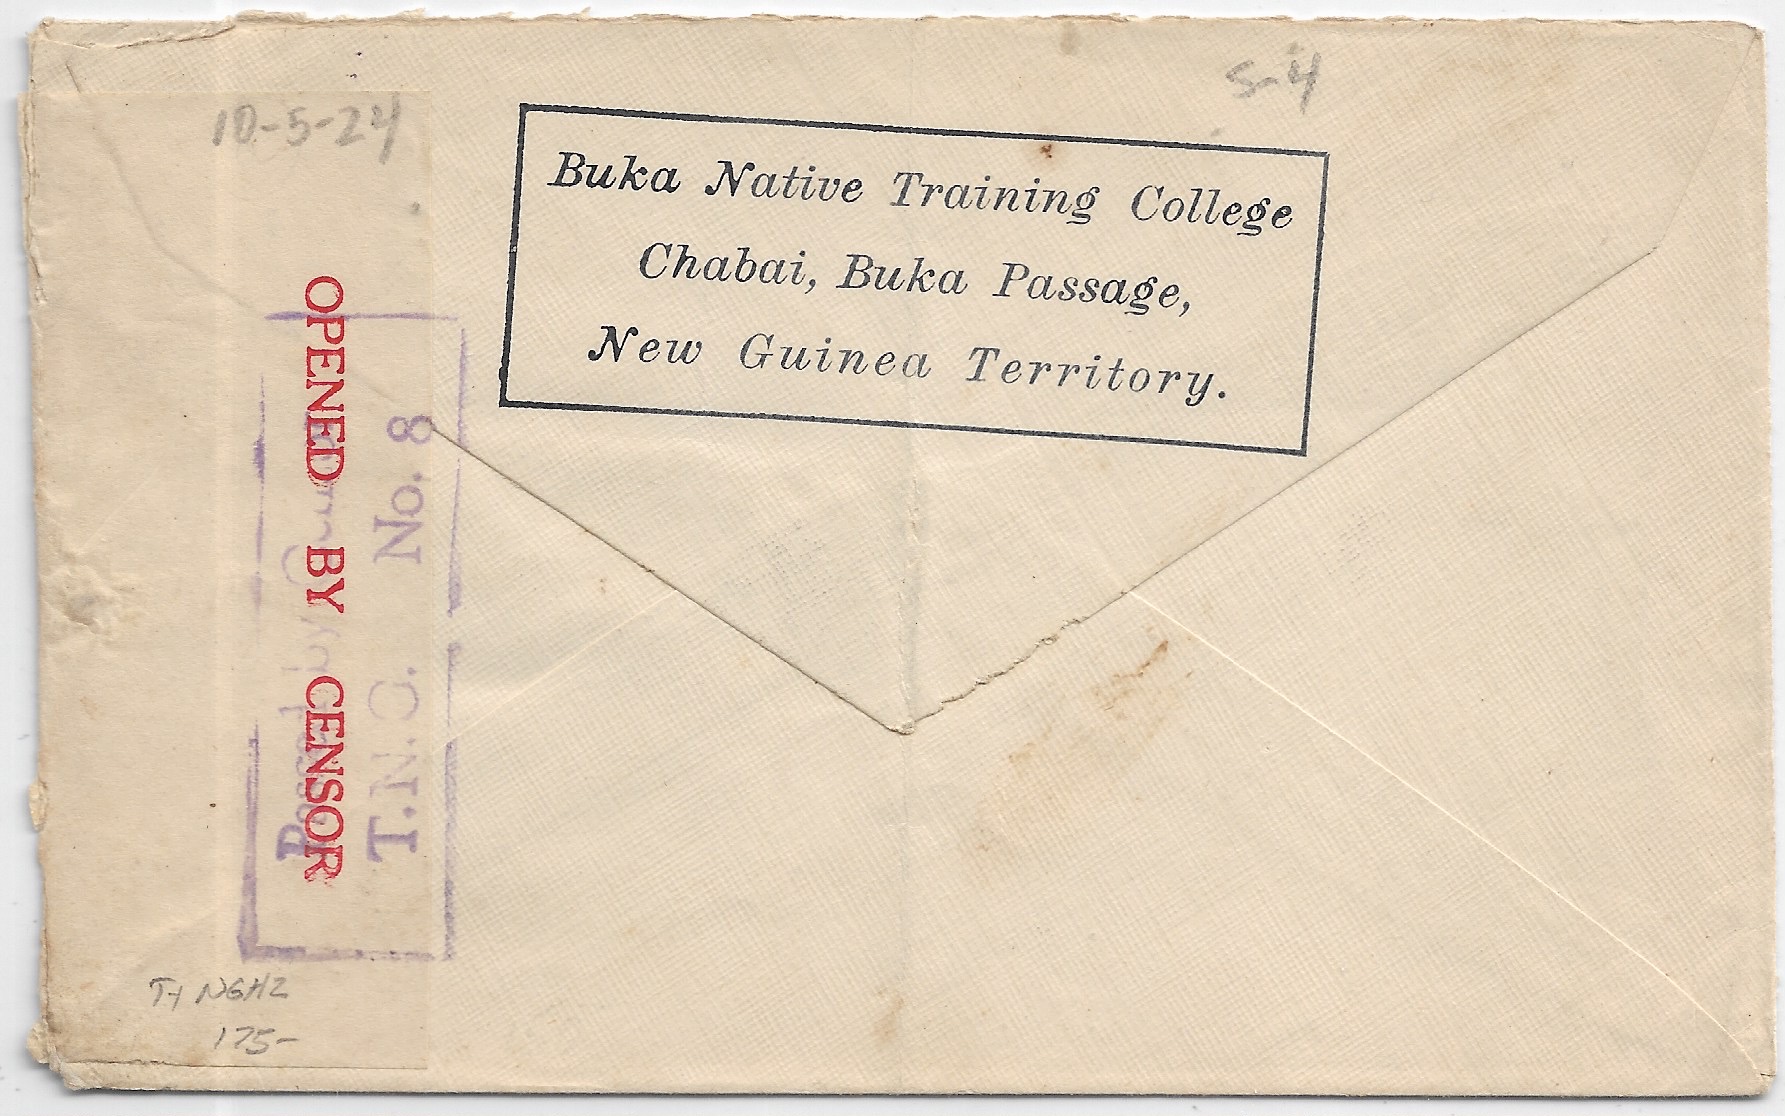 10-5-24
S-4
Buka Native Training College
Chabai, Buka Passage,
New Guinea Territory.
OPENED BY CENSOR
Passed by
T.N.G. No. 8
175-